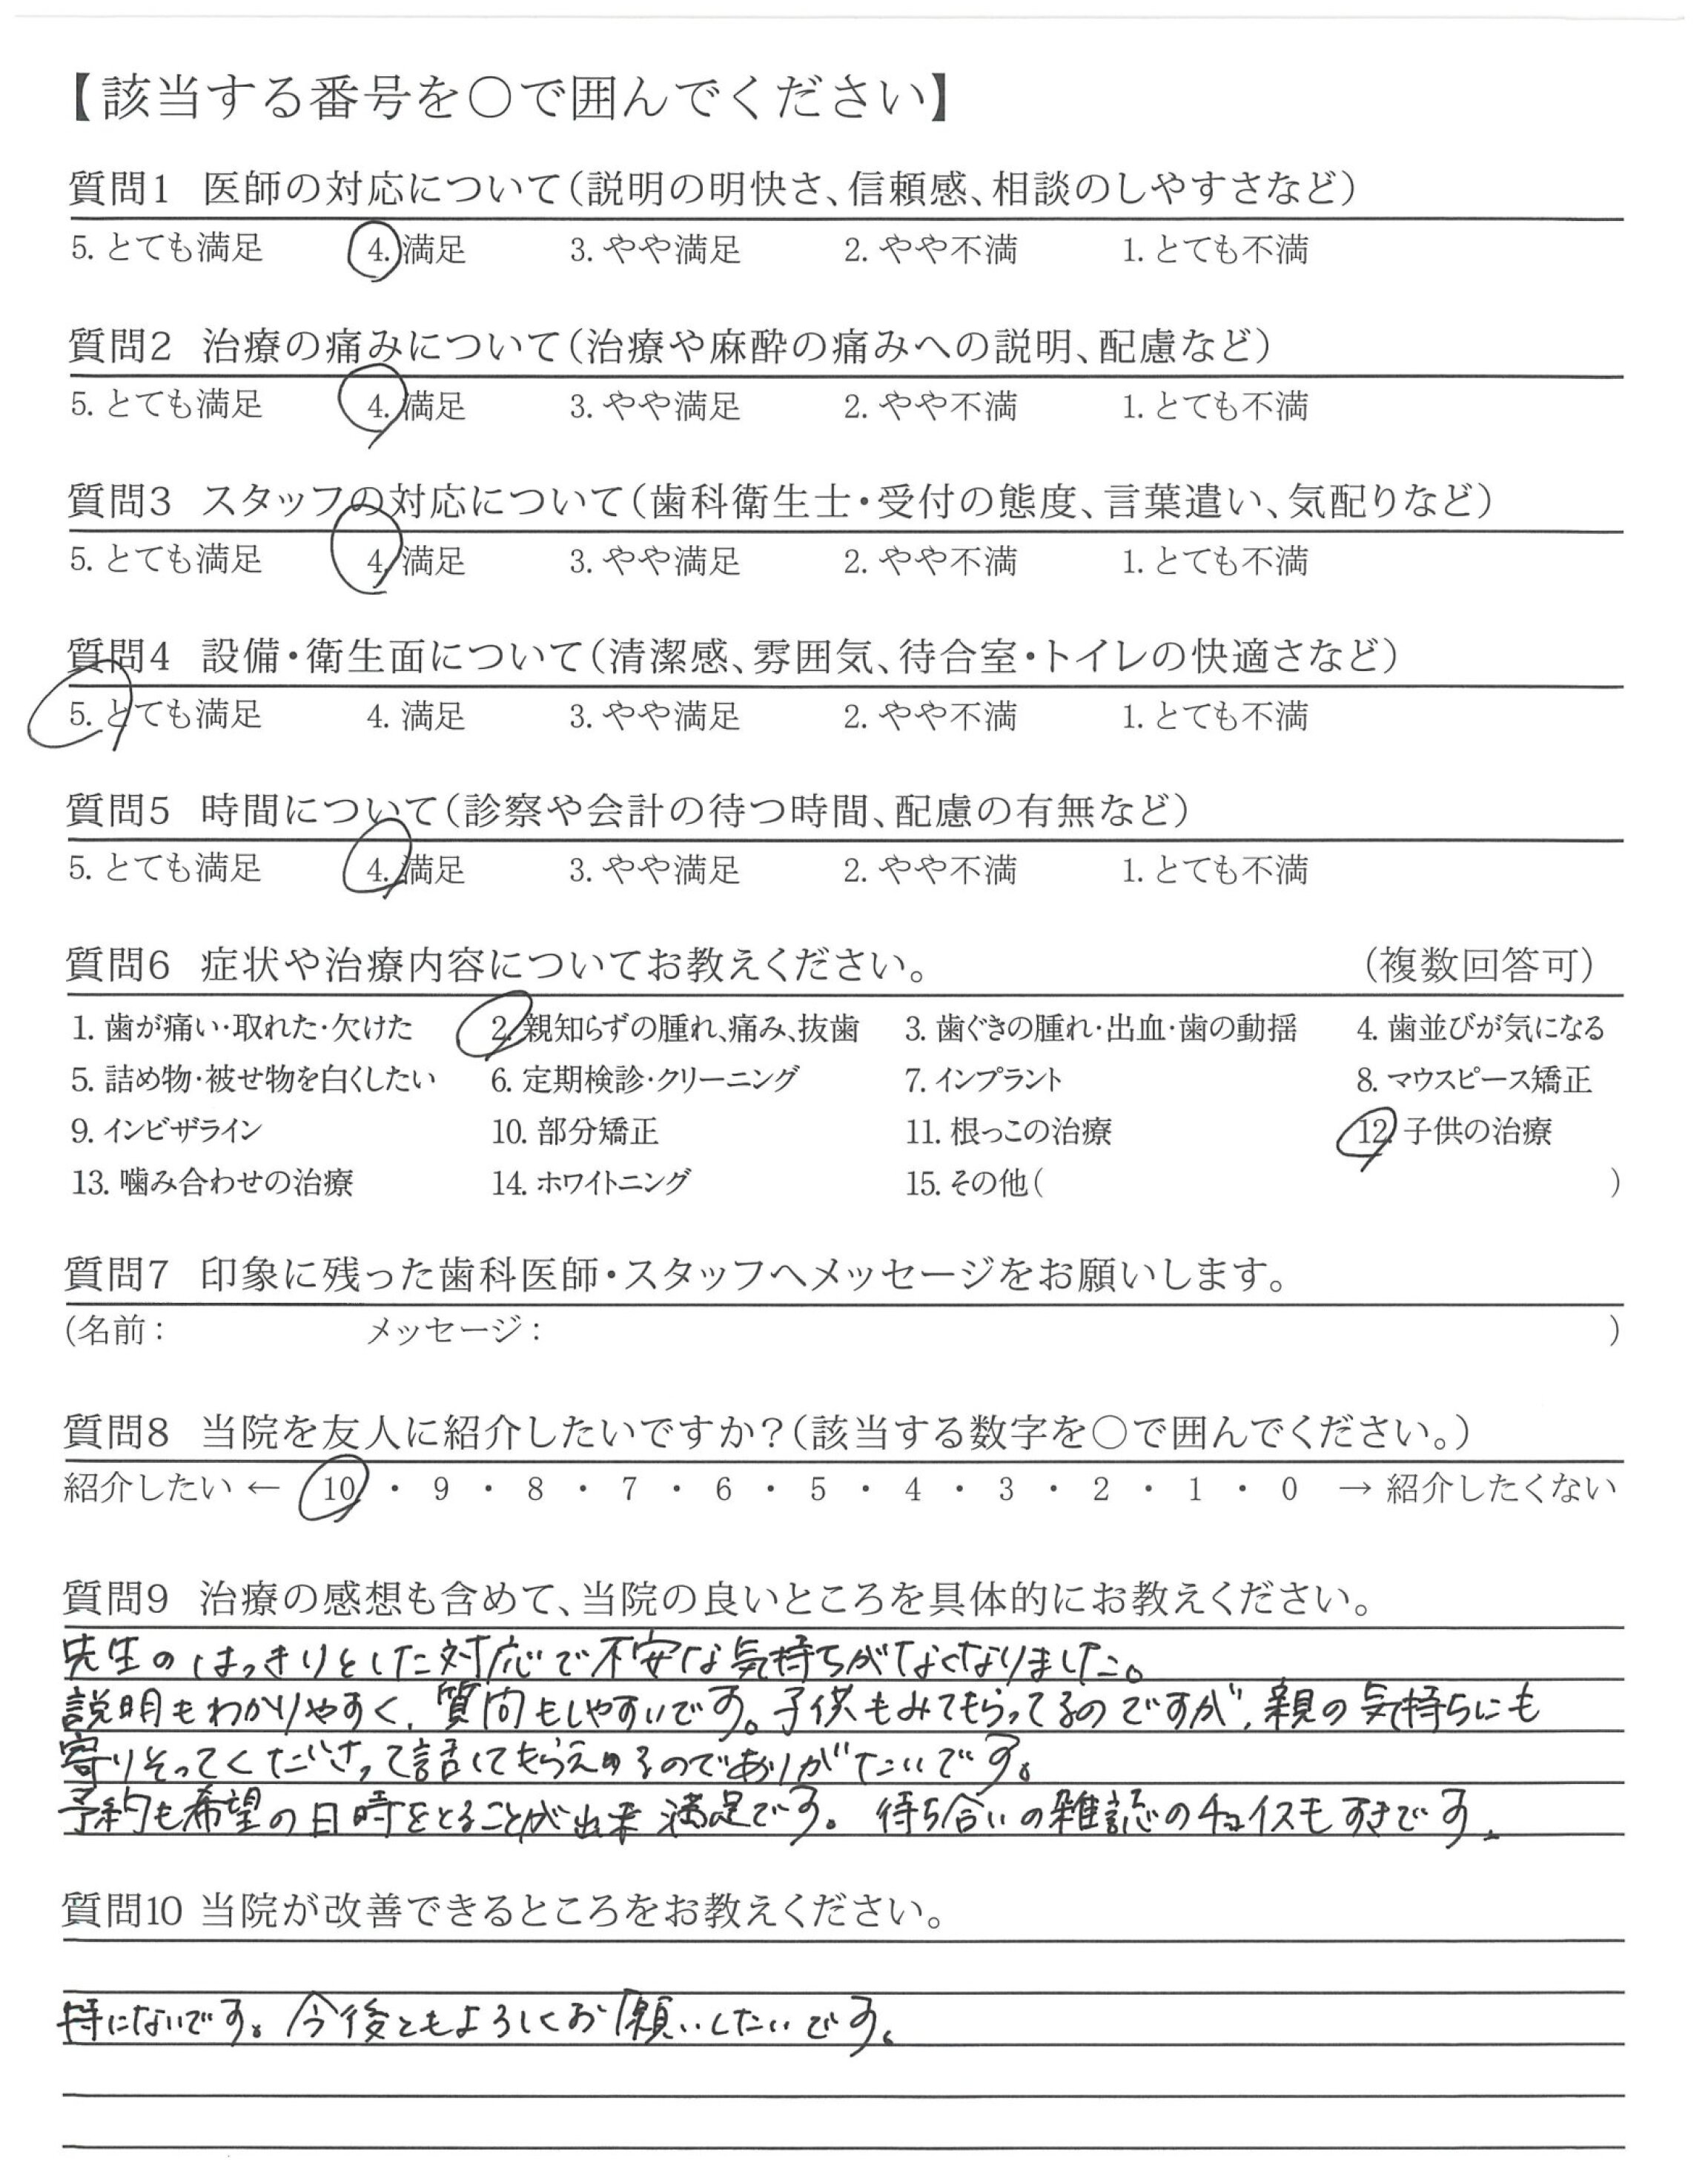 【該当する番号を○で囲んでください】
質問1 医師の対応について（説明の明快さ、信頼感、相談のしやすさなど）
5. とても満足 4. 満足 3. やや満足 2. やや不満 1. とても不満
質問2 治療の痛みについて（治療や麻酔の痛みへの説明、配慮など）
5. とても満足 4. 満足 3. やや満足 2. やや不満 1. とても不満
質問3 スタッフの対応について（歯科衛生士・受付の態度、言葉遣い、気配りなど）
5. とても満足 4. 満足 3. やや満足 2. やや不満 1. とても不満
質問4 設備・衛生面について（清潔感、雰囲気、待合室・トイレの快適さなど）
5. とても満足 4. 満足 3. やや満足 2. やや不満 1. とても不満
質問5 時間について（診察や会計の待つ時間、配慮の有無など）
5. とても満足 4. 満足 3. やや満足 2. やや不満 1. とても不満
質問6 症状や治療内容についてお教えください。 （複数回答可）
1. 歯が痛い・取れた・欠けた 2. 親知らずの腫れ、痛み、抜歯 3. 歯ぐきの腫れ・出血・歯の動揺 4. 歯並びが気になる
5. 詰め物・被せ物を白くしたい 6. 定期検診・クリーニング 7. インプラント 8. マウスピース矯正
9. インビザライン 10. 部分矯正 11. 根っこの治療 12. 子供の治療
13. 噛み合わせの治療 14. ホワイトニング 15. その他（ ）
質問7 印象に残った歯科医師・スタッフへメッセージをお願いします。
（名前： メッセージ： ）
質問8 当院を友人に紹介したいですか？（該当する数字を○で囲んでください。）
紹介したい ← 10 ・ 9 ・ 8 ・ 7 ・ 6 ・ 5 ・ 4 ・ 3 ・ 2 ・ 1 ・ 0 → 紹介したくない
質問9 治療の感想も含めて、当院の良いところを具体的にお教えください。
先生のはっきりとした対応で不安な気持ちがなくなりました。
説明もわかりやすく、質問もしやすいです。子供もみてもらってるのですが、親の気持ちにも
寄りそってくださって話してもらえるのでありがたいです。
予約も希望の日時をとることが出来満足です。待ち合いの雑誌のチョイスもすきです。
質問10 当院が改善できるところをお教えください。
特にないです。今後ともよろしくお願いしたいです。